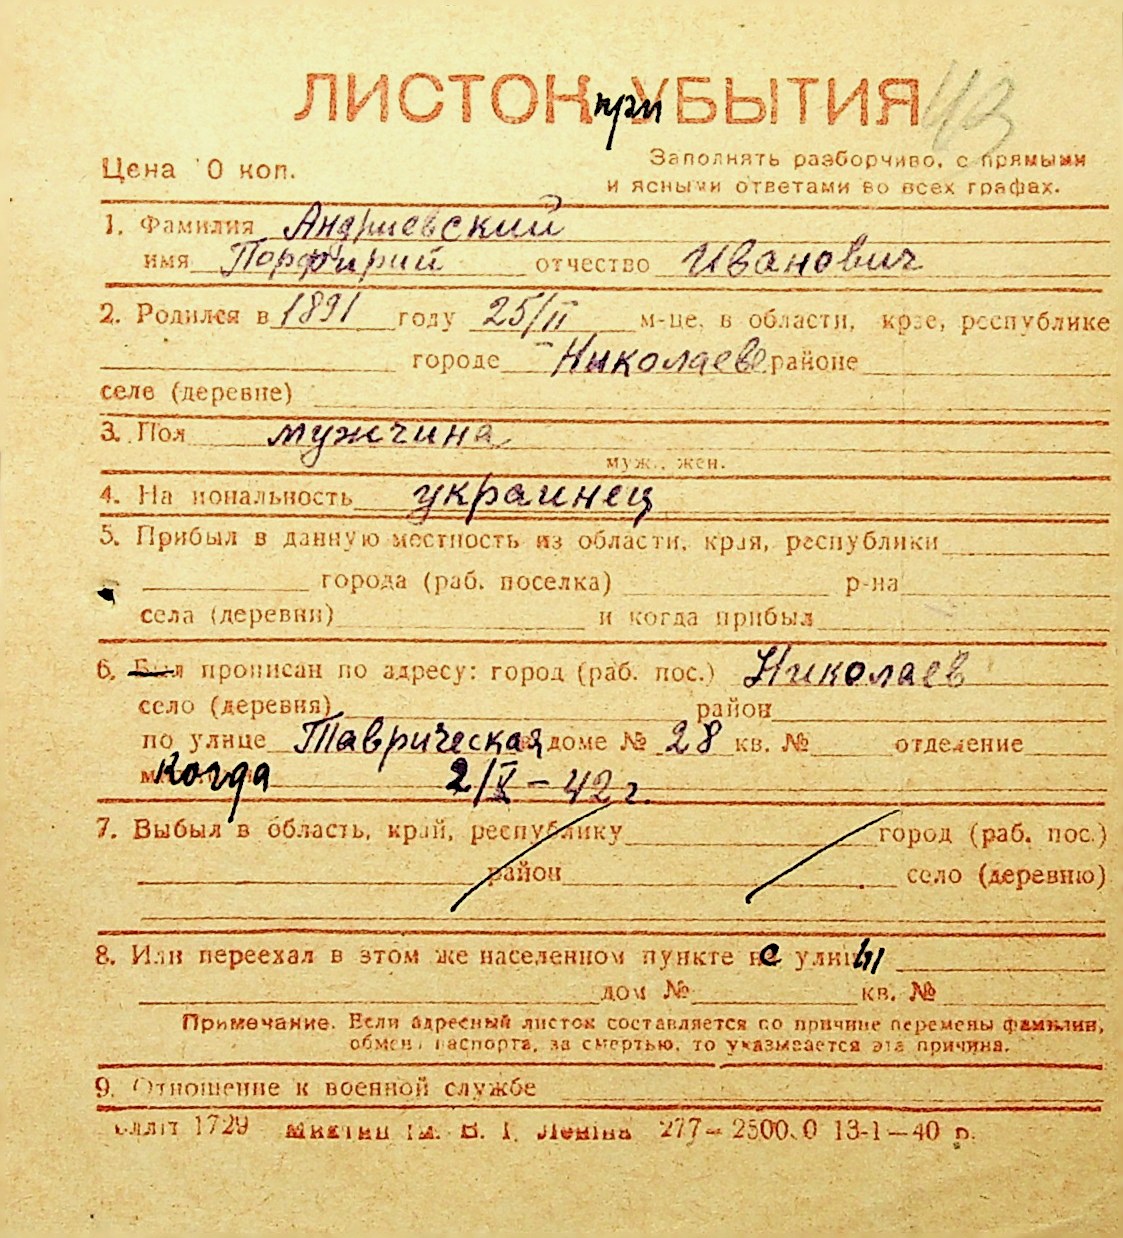 ЛИСТОК при УБЫТИЯ 43
Цена 10 коп.
Заполнять разборчиво, с прямыми
и ясными ответами во всех графах.
1. Фамилия Андриевский
имя Порфирий отчество Иванович
2. Родился в 1891 году 25/II м-це, в области, крае, республике
городе Николаеве районе
селе (деревне)
3. Пол мужчина
муж., жен.
4. Национальность украинец
5. Прибыл в данную местность из области, края, республики
города (раб. поселка) р-на
села (деревни) и когда прибыл
6. Был прописан по адресу: город (раб. пос.) Николаев
село (деревня) район
по улице Таврическая доме № 28 кв. № отделение
когда 2/X-42 г.
7. Выбыл в область, край, республику город (раб. пос.)
район село (деревню)
8. Или переехал в этом же населенном пункте с улицы
дом № кв. №
Примечание. Если адресный листок составляется по причине перемены фамилии,
обмена паспорта, за смертью, то указывается эта причина.
9. Отношение к военной службе
1729 ім. В. І. Леніна 277–2500.0 13-1–40 р.